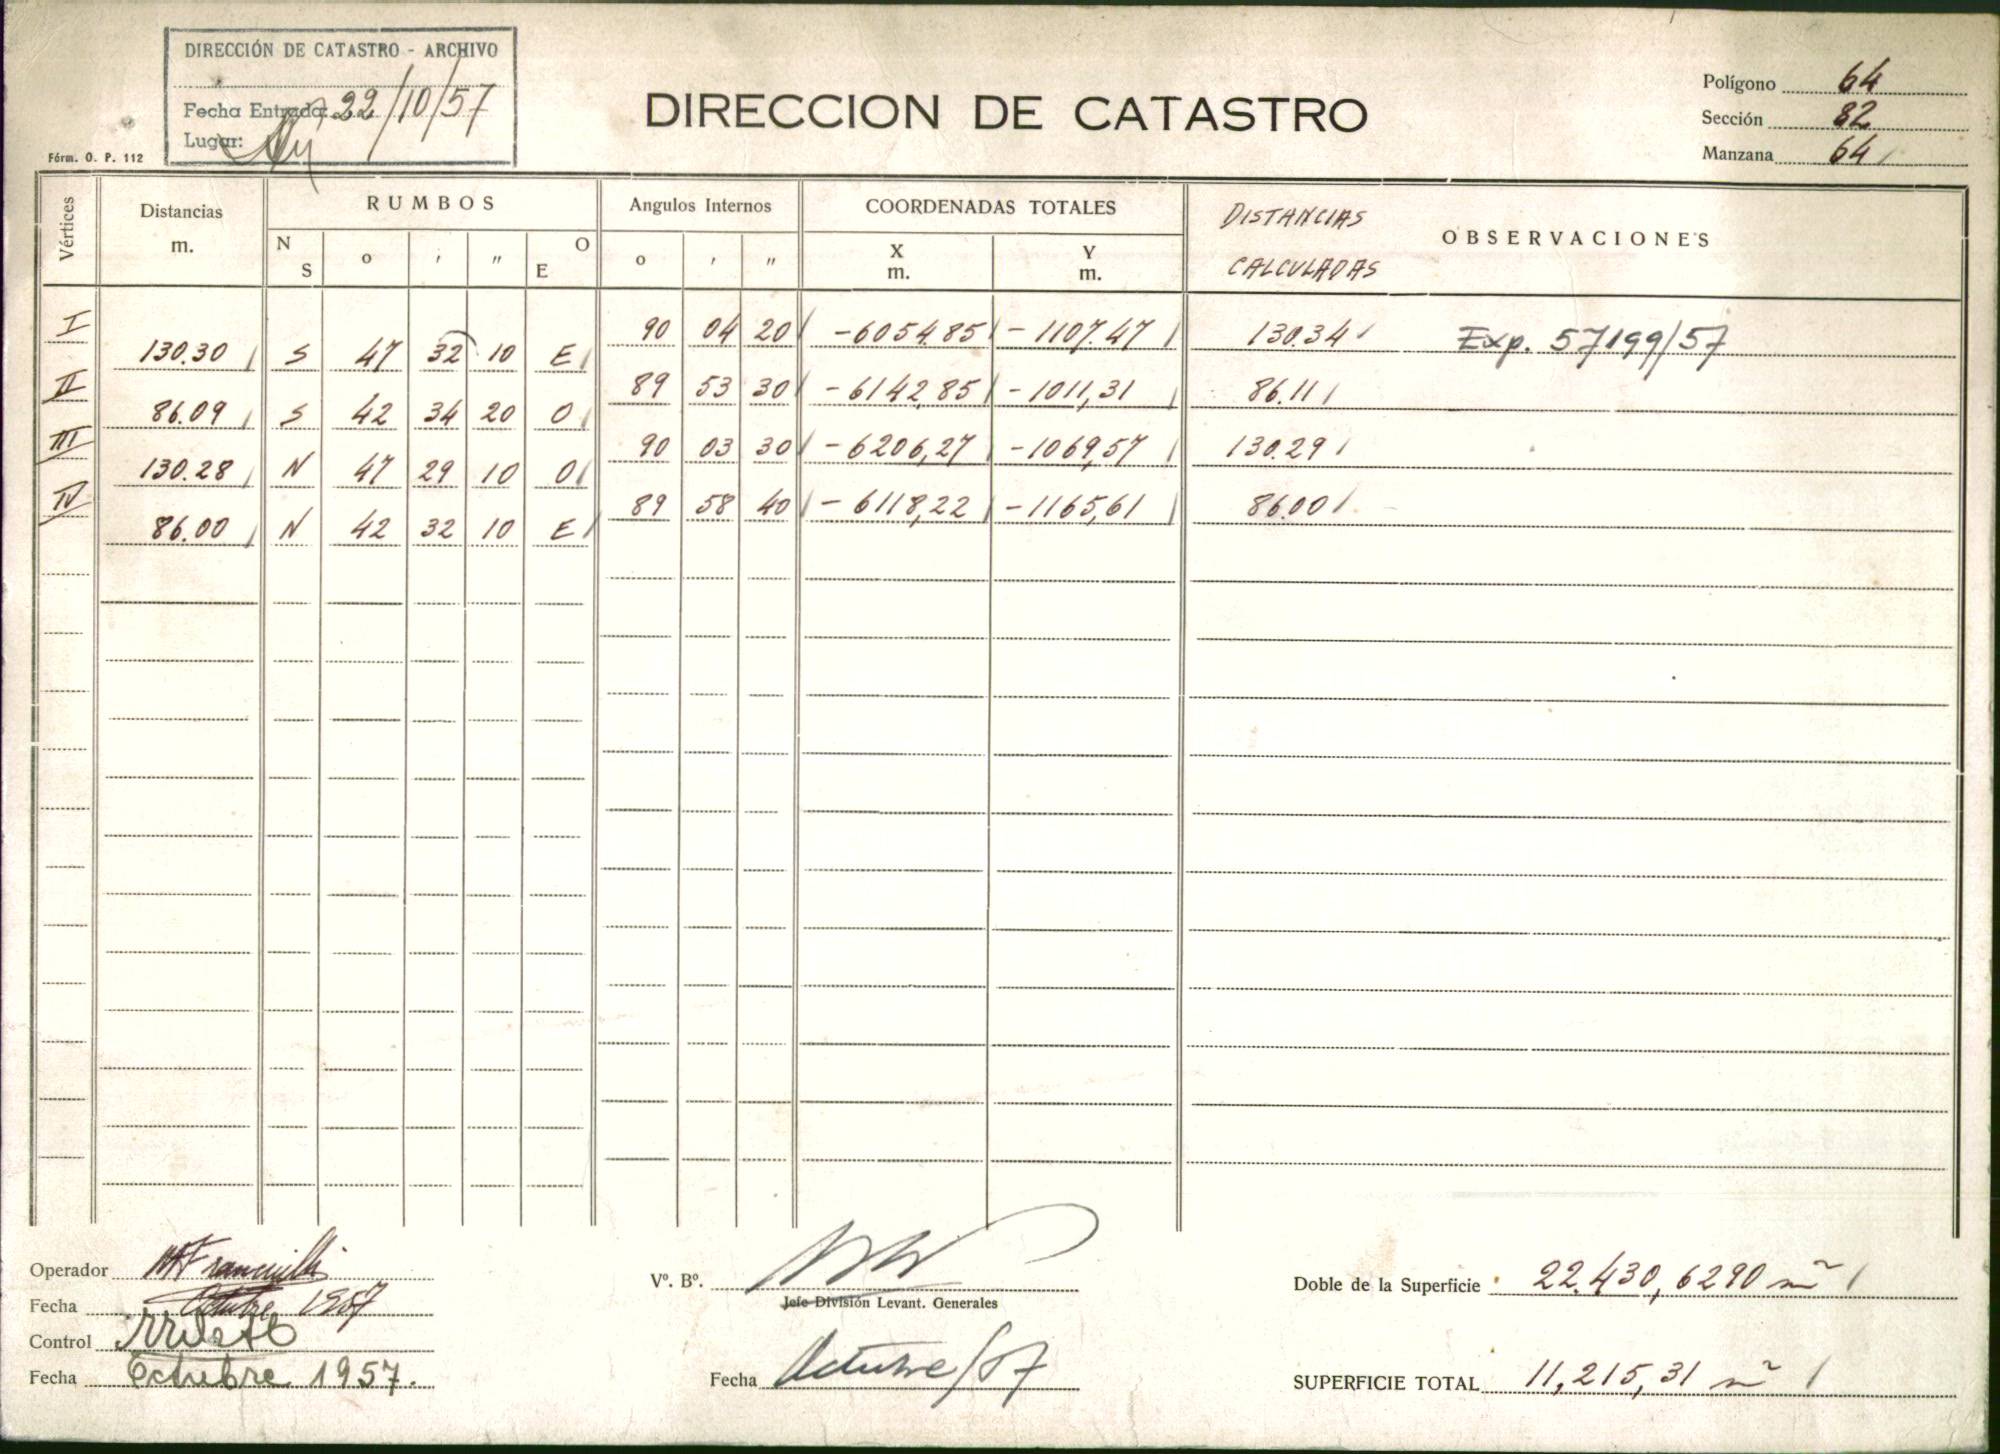 DIRECCIÓN DE CATASTRO - ARCHIVO
Fecha Entrada: 22/10/57
Lugar:
Fórm. O. P. 112
DIRECCION DE CATASTRO
Polígono 64
Sección 82
Manzana 64
Vértices
Distancias
m.
RUMBOS
N S o ' " O E
Angulos Internos
o ' "
COORDENADAS TOTALES
X
m.
Y
m.
DISTANCIAS
CALCULADAS
OBSERVACIONES
I 90 04 20 -6054.85 -1107.47 130.34 Exp. 57199/57
130.30 S 47 32 10 E
II 89 53 30 -6142,85 -1011,31 86.11
86.09 S 42 34 20 O
III 90 03 30 -6206,27 -1069,57 130.29
130.28 N 47 29 10 O
IV 89 58 40 -6118,22 -1165,61 86.00
86.00 N 42 32 10 E
Operador
Fecha Octubre 1957
Control
Fecha Octubre 1957.
Vº. Bº.
Jefe División Levant. Generales
Fecha Octubre/57
Doble de la Superficie 22.430,6290 m²
SUPERFICIE TOTAL 11,215,31 m²